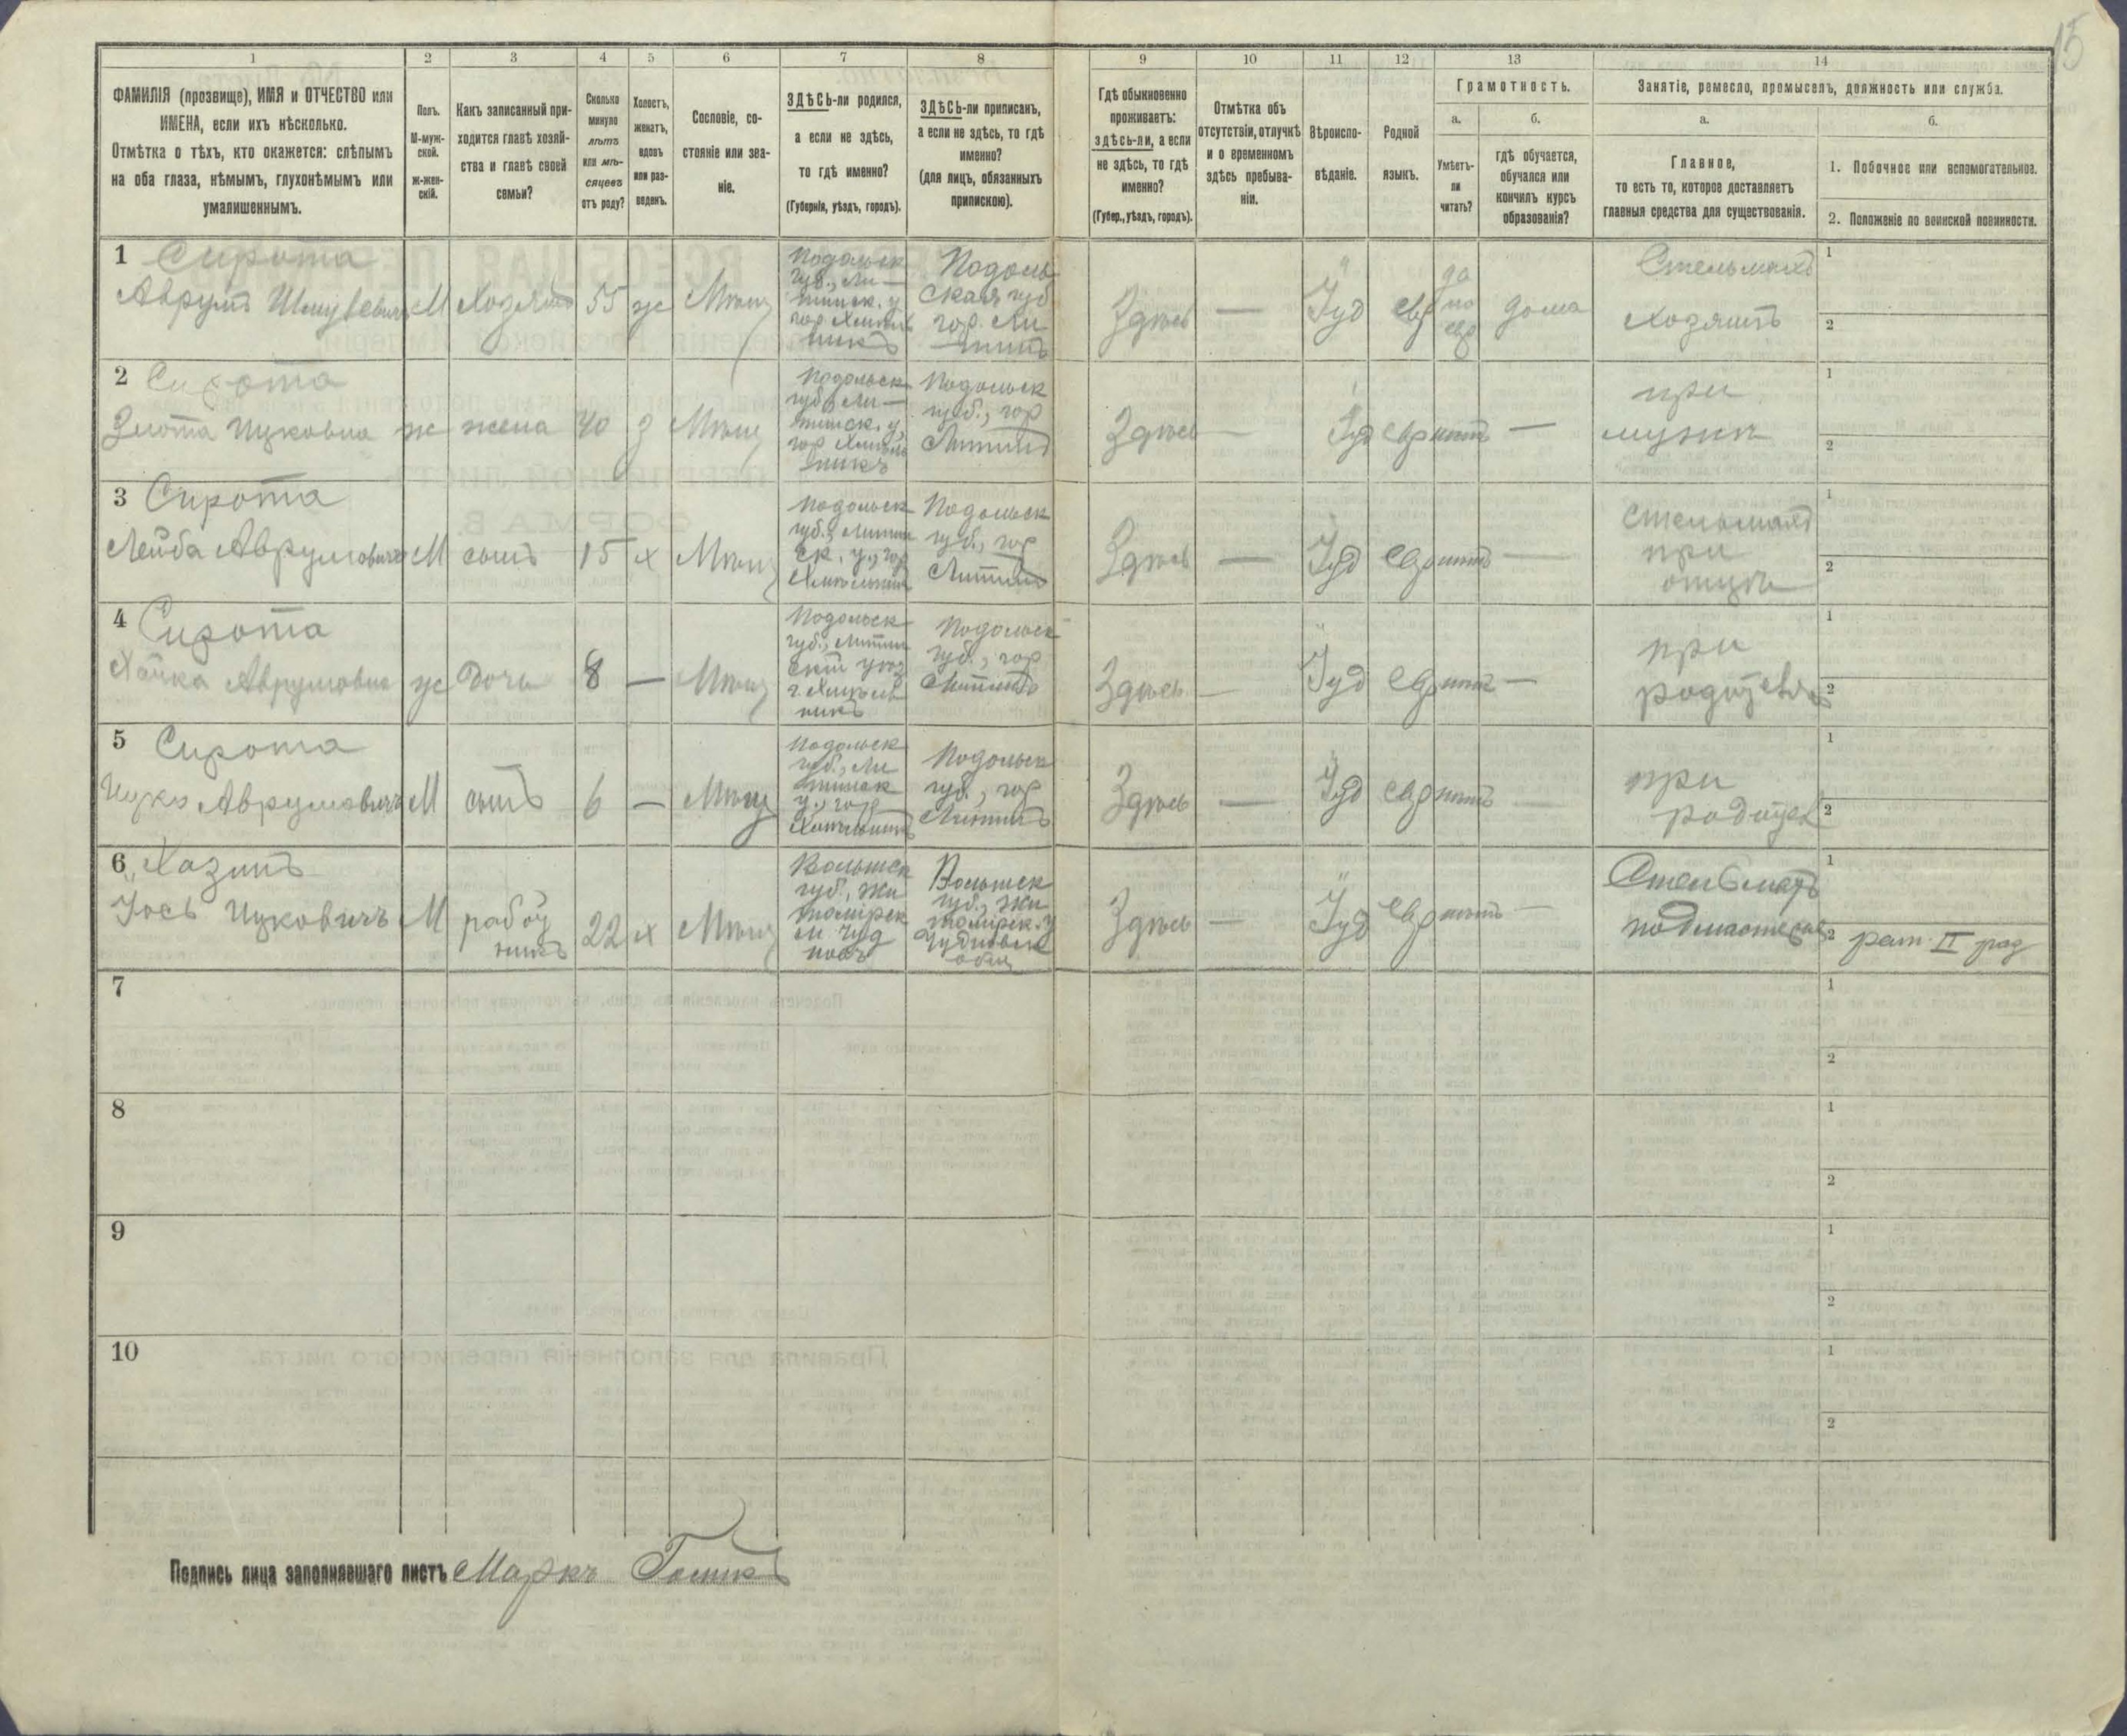 15
1 2 3 4 5 6 7 8 9 10 11 12 13 14
ФАМИЛІЯ (прозвище), ИМЯ и ОТЧЕСТВО или
ИМЕНА, если ихъ нѣсколько.
Отмѣтка о тѣхъ, кто окажется: слѣпымъ
на оба глаза, нѣмымъ, глухонѣмымъ или
умалишеннымъ.
Полъ.
М-муж-
ской.
ж-жен-
скій.
Какъ записанный при-
ходится главѣ хозяй-
ства и главѣ своей
семьи?
Сколько
минуло
лѣтъ
или мѣ-
сяцевъ
отъ роду?
Холостъ,
женатъ,
вдовъ
или раз-
веденъ.
Сословіе, со-
стояніе или зва-
ніе.
ЗДѢСЬ-ли родился,
а если не здѣсь,
то гдѣ именно?
(Губернія, уѣздъ, городъ).
ЗДѢСЬ-ли приписанъ,
а если не здѣсь, то гдѣ
именно?
(для лицъ, обязанныхъ
припискою).
Гдѣ обыкновенно
проживаетъ:
здѣсь-ли, а если
не здѣсь, то гдѣ
именно?
(Губер., уѣздъ, городъ).
Отмѣтка объ
отсутствіи, отлучкѣ
и о временномъ
здѣсь пребыва-
ніи.
Вѣроиспо-
вѣданіе.
Родной
языкъ.
Грамотность.
а.
Умѣетъ-
ли
читать?
б.
гдѣ обучается,
обучался или
кончилъ курсъ
образованія?
Занятіе, ремесло, промыселъ, должность или служба.
а.
Главное,
то есть то, которое доставляетъ
главныя средства для существованія.
б.
1. Побочное или вспомогательное.
2. Положеніе по воинской повинности.
1 Сирота
Аврумъ
М
Хозяинъ
55
ж
Мѣщ
Подольск
губ., Ли-
тинск. у
гор Хмѣль
никъ
Подоль
ская губ
гор. Ли
тинъ
Здѣсь
—
Іуд
евр
да
по
евр
дома
Стельмахъ
Хозяинъ
1
2
2 Сирота
Злота Ицковна
ж
жена
40
з
Мѣщ
Подольск
губ., Ли-
тинск. у,
гор Хмѣль
никъ
Подольск
губ., гор
Литинъ
Здѣсь
—
Іуд
евр
нѣтъ
—
при
мужѣ
1
2
3 Сирота
Лейба Аврумовичъ
М
сынъ
15
х
Мѣщ
Подольск
губ., Литин
ск. у., гор
Хмѣльникъ
Подольск
губ., гор
Литинъ
Здѣсь
—
Іуд
евр
нѣтъ
—
стельмахъ
при
отцѣ
1
2
4 Сирота
Хайка Аврумовна
ж
Дочь
8
—
Мѣщ
Подольск
губ., Литин
скій уѣз
г. Хмѣль
никъ
Подольск
губ., гор
Литинъ
Здѣсь
—
Іуд
евр
нѣтъ
—
при
1
2
5 Сирота
Ицко Аврумовичъ
М
сынъ
6
—
Мѣщ
Подольск
губ., Ли
тинск
у., гор
Хмѣльникъ
Подольск
губ., гор
Литинъ
Здѣсь
—
Іуд
евр
нѣтъ
—
при
1
2
6 Хазинъ
Іось Ицковичъ
М
работ
никъ
22
х
Мѣщ
Волынск
губ., Жи
томірск
м. Чуд
новъ
Волынск
губ., Жи
томірск. у
Чудновск
общ
Здѣсь
—
Іуд
евр
нѣтъ
—
Стельмахъ
подмастерье
1
2 рат. II раз
7
1
2
8
1
2
9
1
2
10
1
2
Подпись лица заполнявшаго листъ Маркъ